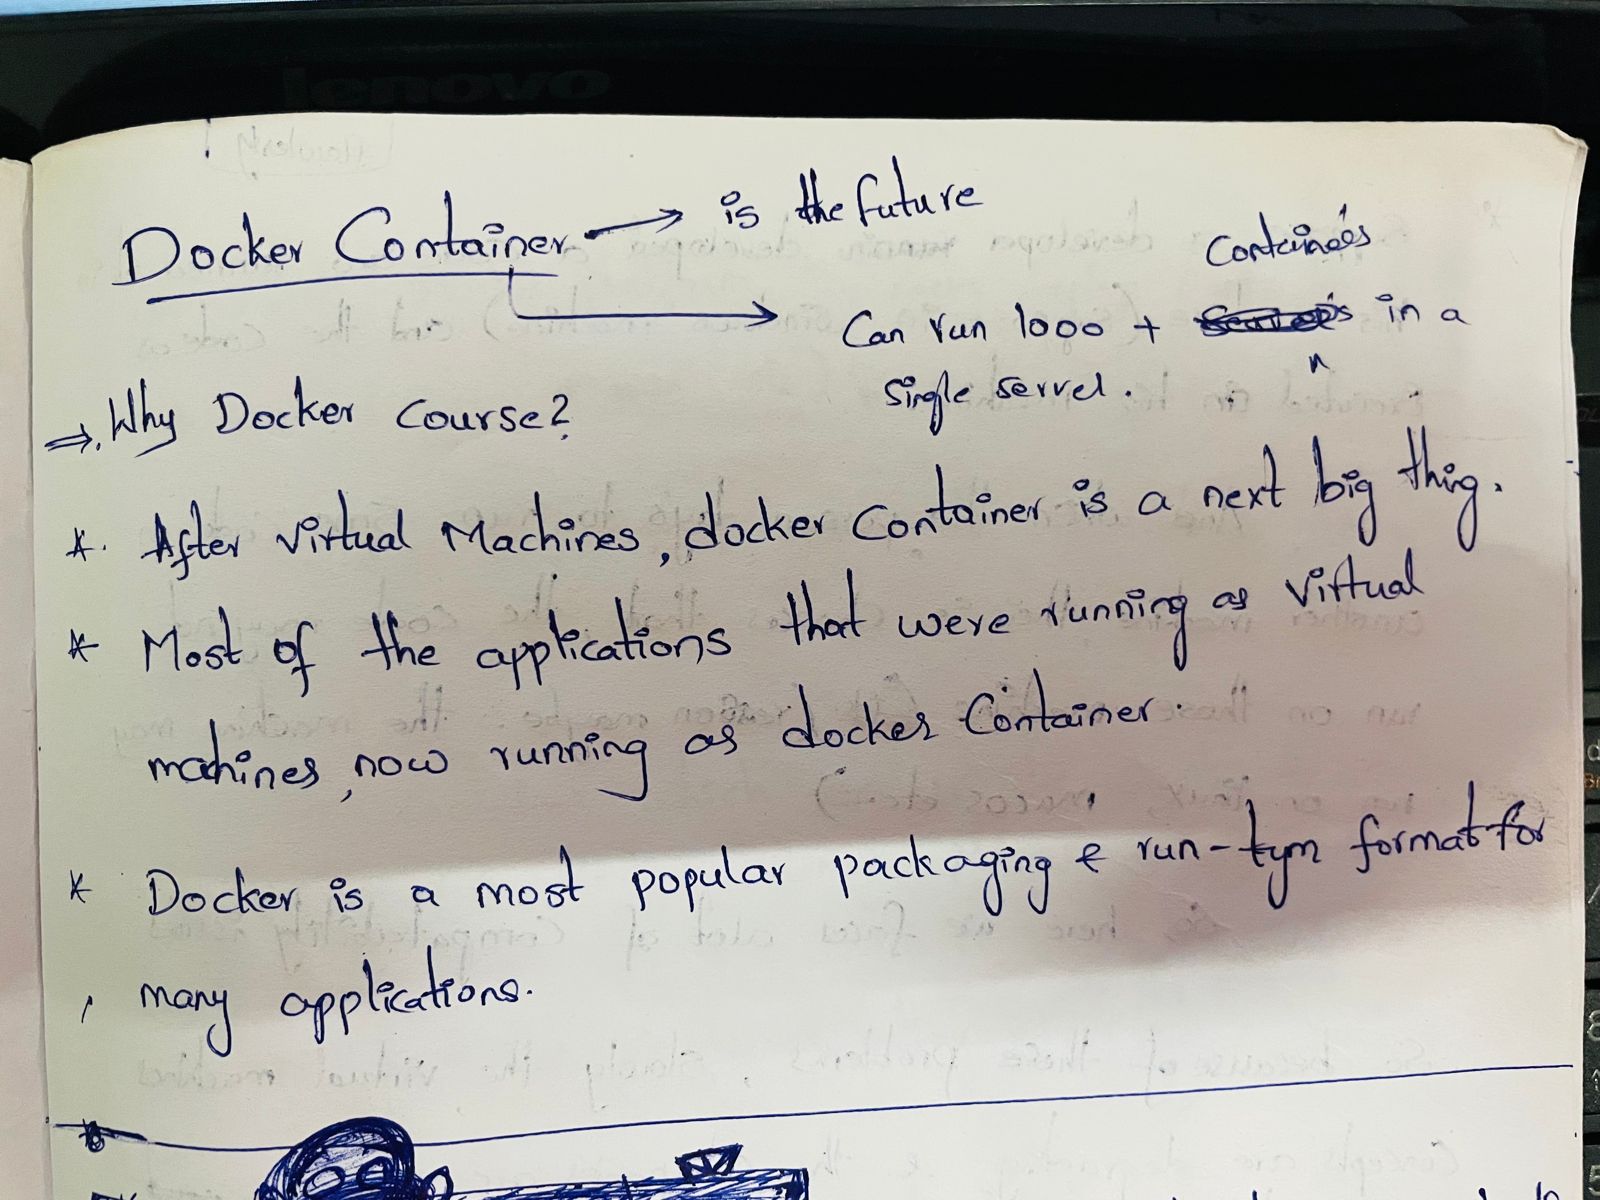 lenovo
Docker Container → is the future
Containers
Can run 1000 + in a
single server.
⇒. Why Docker Course?
*. After Virtual Machines, docker Container is a next big thing.
* Most of the applications that were running as Virtual
machines, now running as docker Container.
* Docker is a most popular packaging & run-tym format for
many applications.